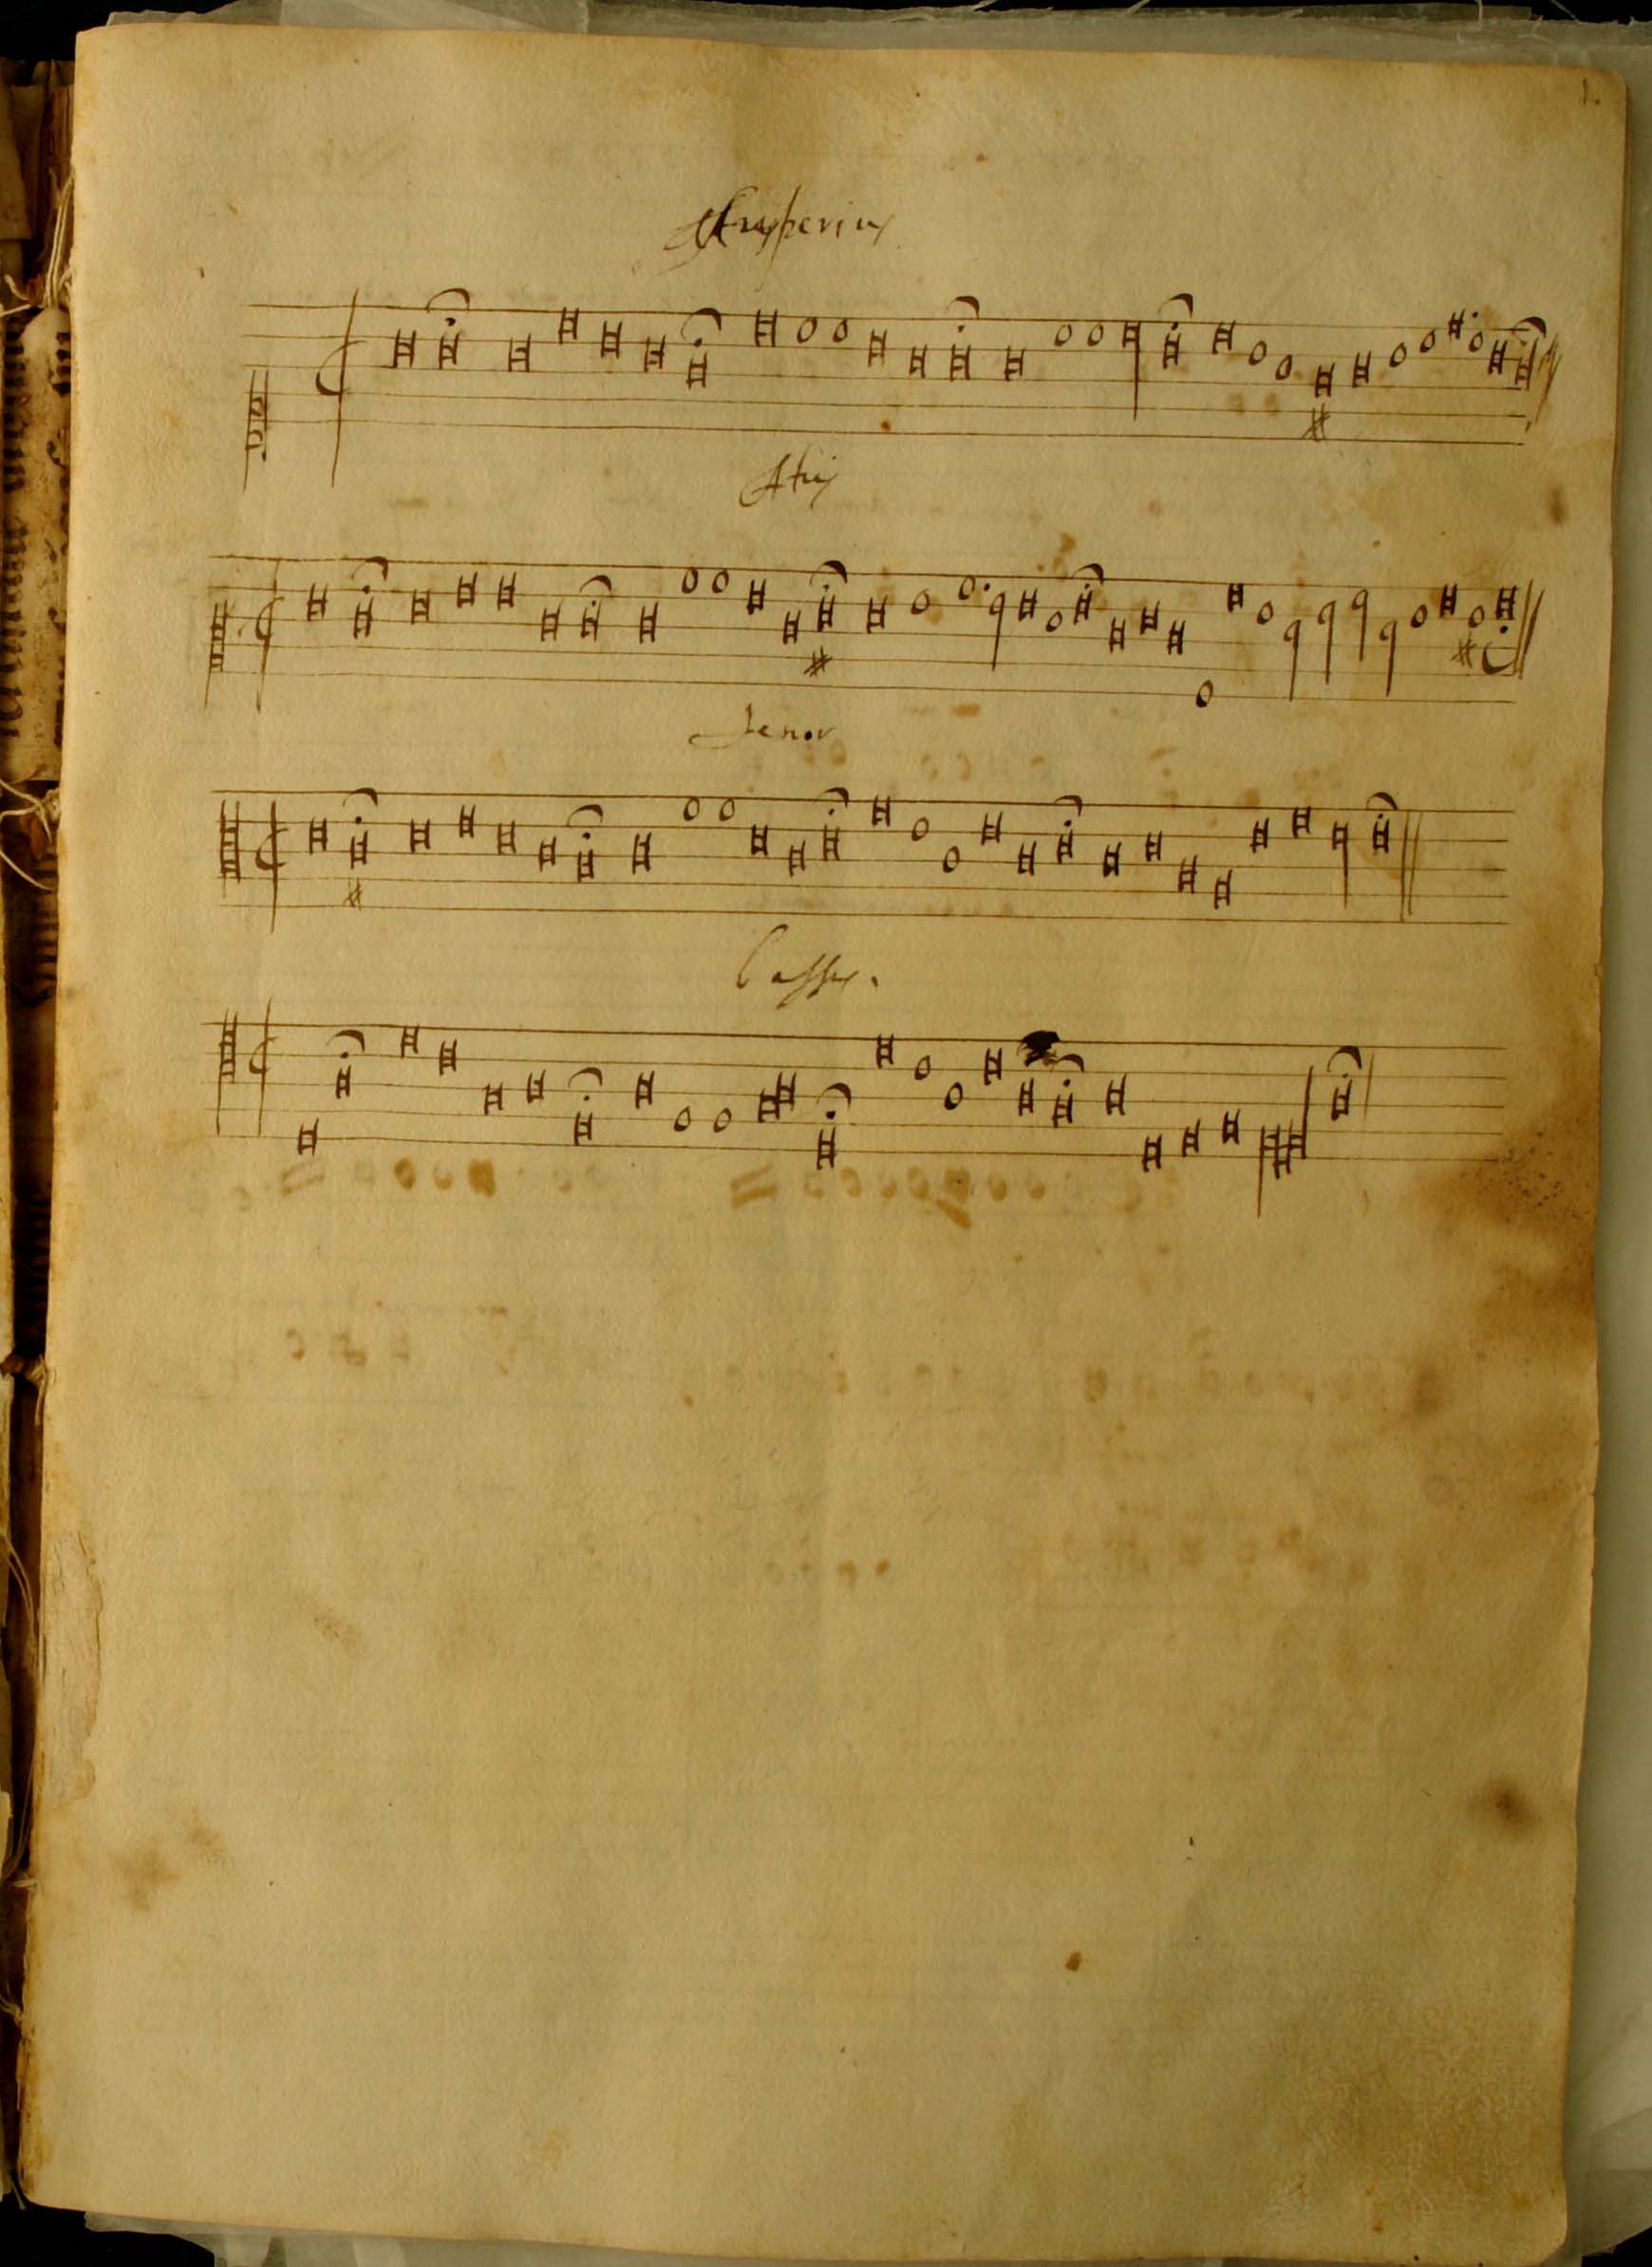 1.
Superius
Altus
Tenor
Bassus.